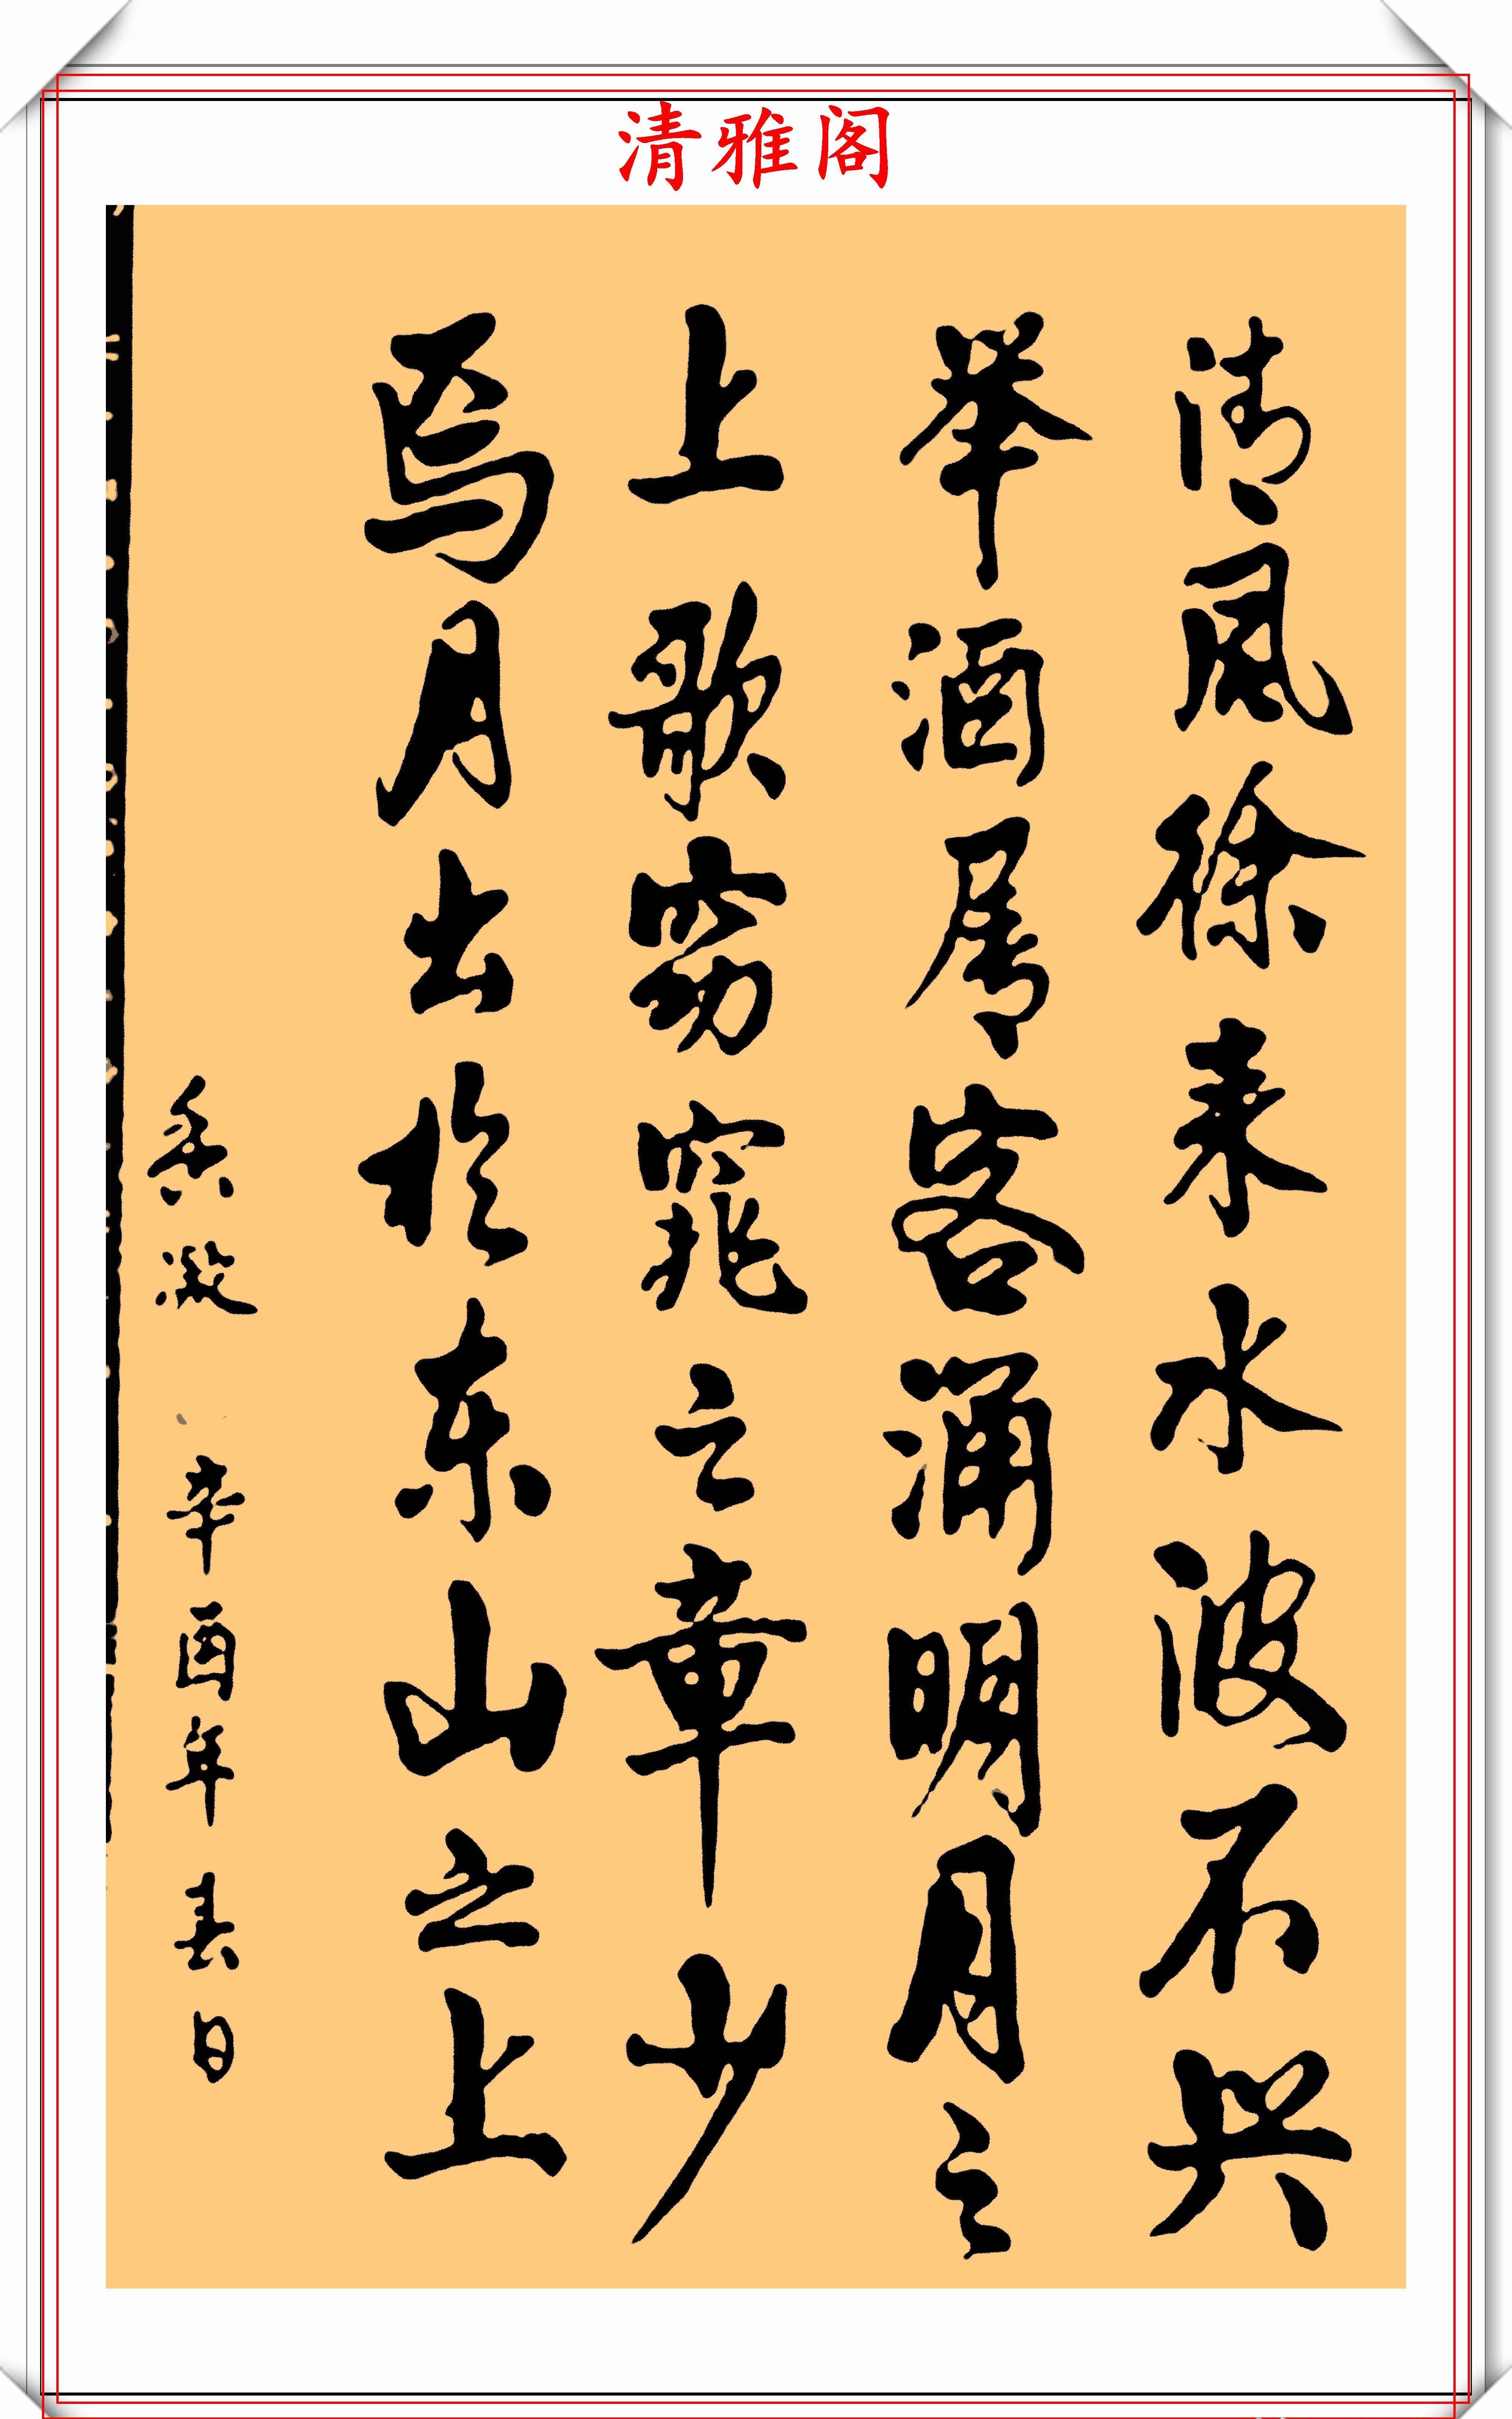 清雅阁
清風徐来水波不兴
举酒属客诵明月之
上歌窈窕之章少
焉月出於东山之上
辛酉年春日